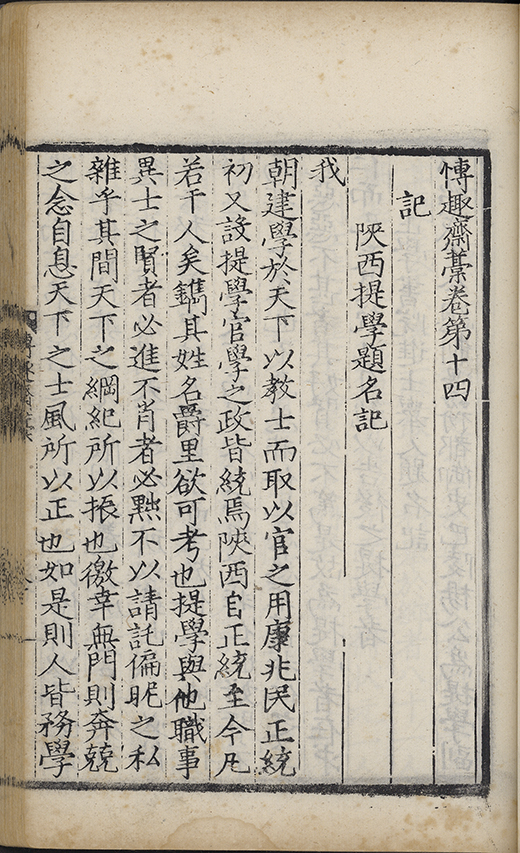 博趣齋藁卷第十四
記
陝西提學題名記
我
朝建學於天下以教士而取以官之用康兆民正統
初又設提學官學之政皆統焉陝西自正統至今凡
若干人矣鐫其姓名爵里欲可考也提學與他職事
異士之賢者必進不肖者必黜不以請託偏昵之私
雜乎其間天下之綱紀所以振也徼幸無門則奔競
之念自息天下之士風所以正也如是則人皆務學